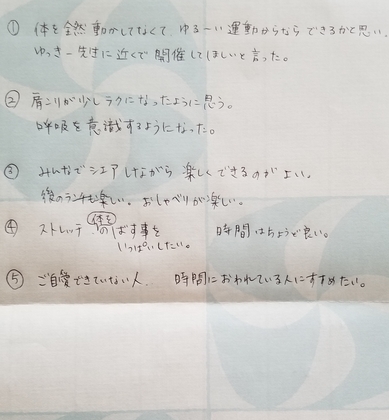 ① 体を全然動かしてなくて、ゆる〜い運動からならできるかと思い、
ゆっきー先生に近くで開催してほしいと言った。
② 肩こりが少しラクになったように思う。
呼吸を意識するようになった。
③ みんなでシェアしながら楽しくできるのがよい。
後のランチも楽しい。おしゃべりが楽しい。
④ ストレッチ 体をのばす事を 時間はちょうど良い。
いっぱいしたい。
⑤ ご自愛できていない人、 時間におわれている人にすすめたい。